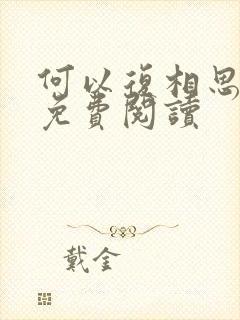 何以復相思
免費閱讀
戴金